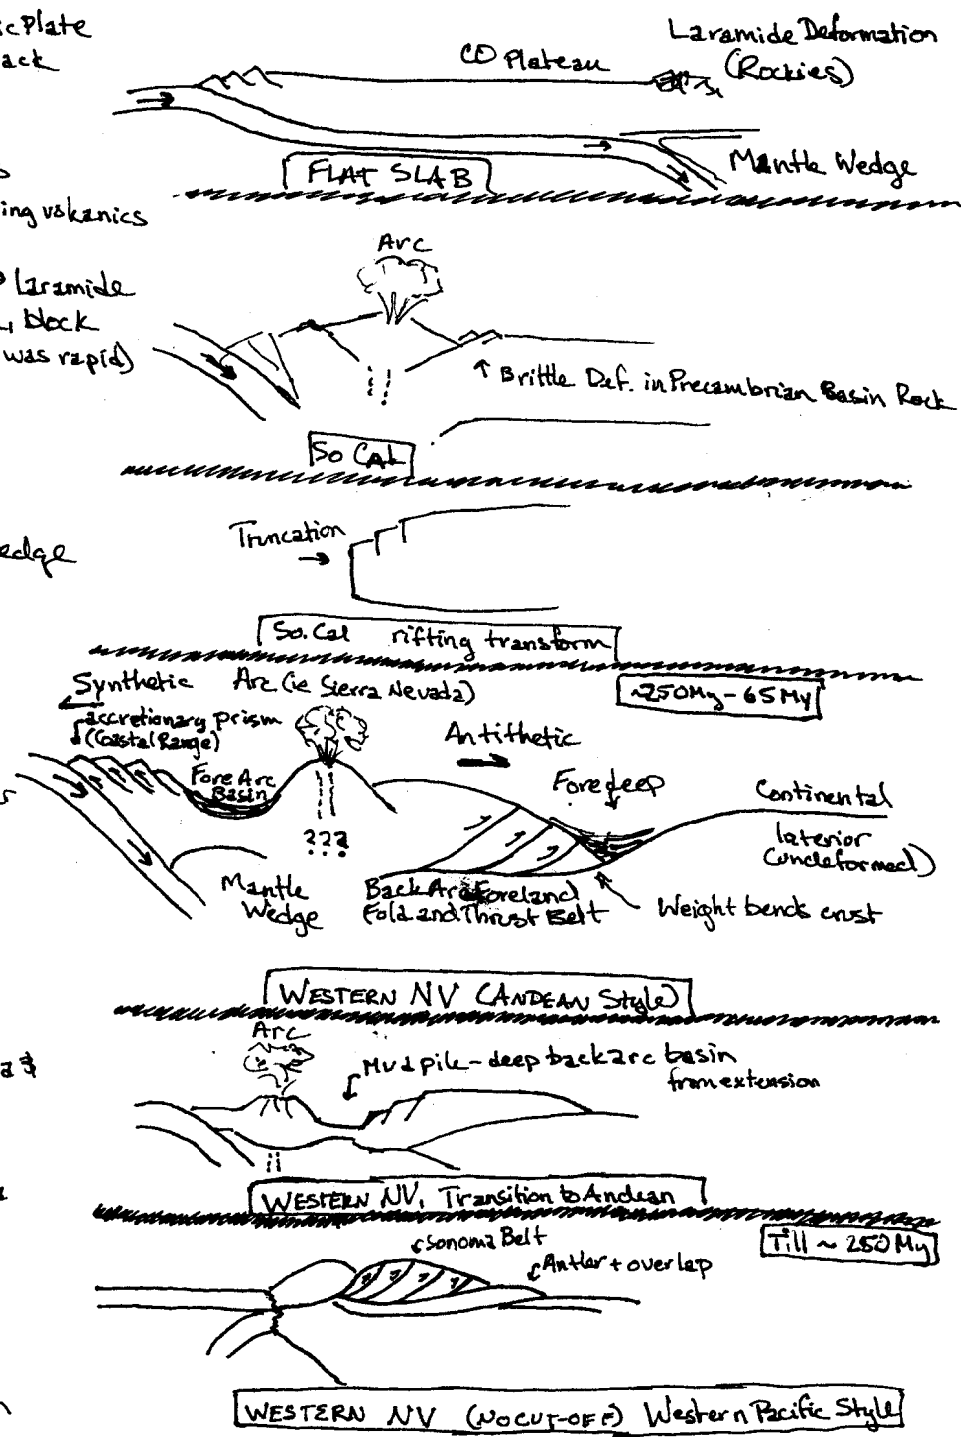 ic Plate
ack
Laramide Deformation
(Rockies)
CO Plateau
Mantle Wedge
FLAT SLAB
ing volcanics
Arc
Laramide
block
was rapid)
↑ Brittle Def. in Precambrian Basin Rock
So CAL
Truncation
→
edge
So. Cal rifting transform
Synthetic
Arc (ie Sierra Nevada)
~250My - 65 My
accretionary prism
(Coastal Range)
Antithetic
Fore Arc
Basin
Foredeep
Continental
Interior
(undeformed)
???
Mantle
Wedge
Back Arc Foreland
Fold and Thrust Belt
Weight bends crust
WESTERN NV (ANDEAN Style)
Arc
Mud pile - deep backarc basin
from extension
a &
WESTERN NV, Transition to Andean
Till ~ 250 My
Sonoma Belt
Antler + overlap
WESTERN NV (NO CUT-OFF) Western Pacific Style